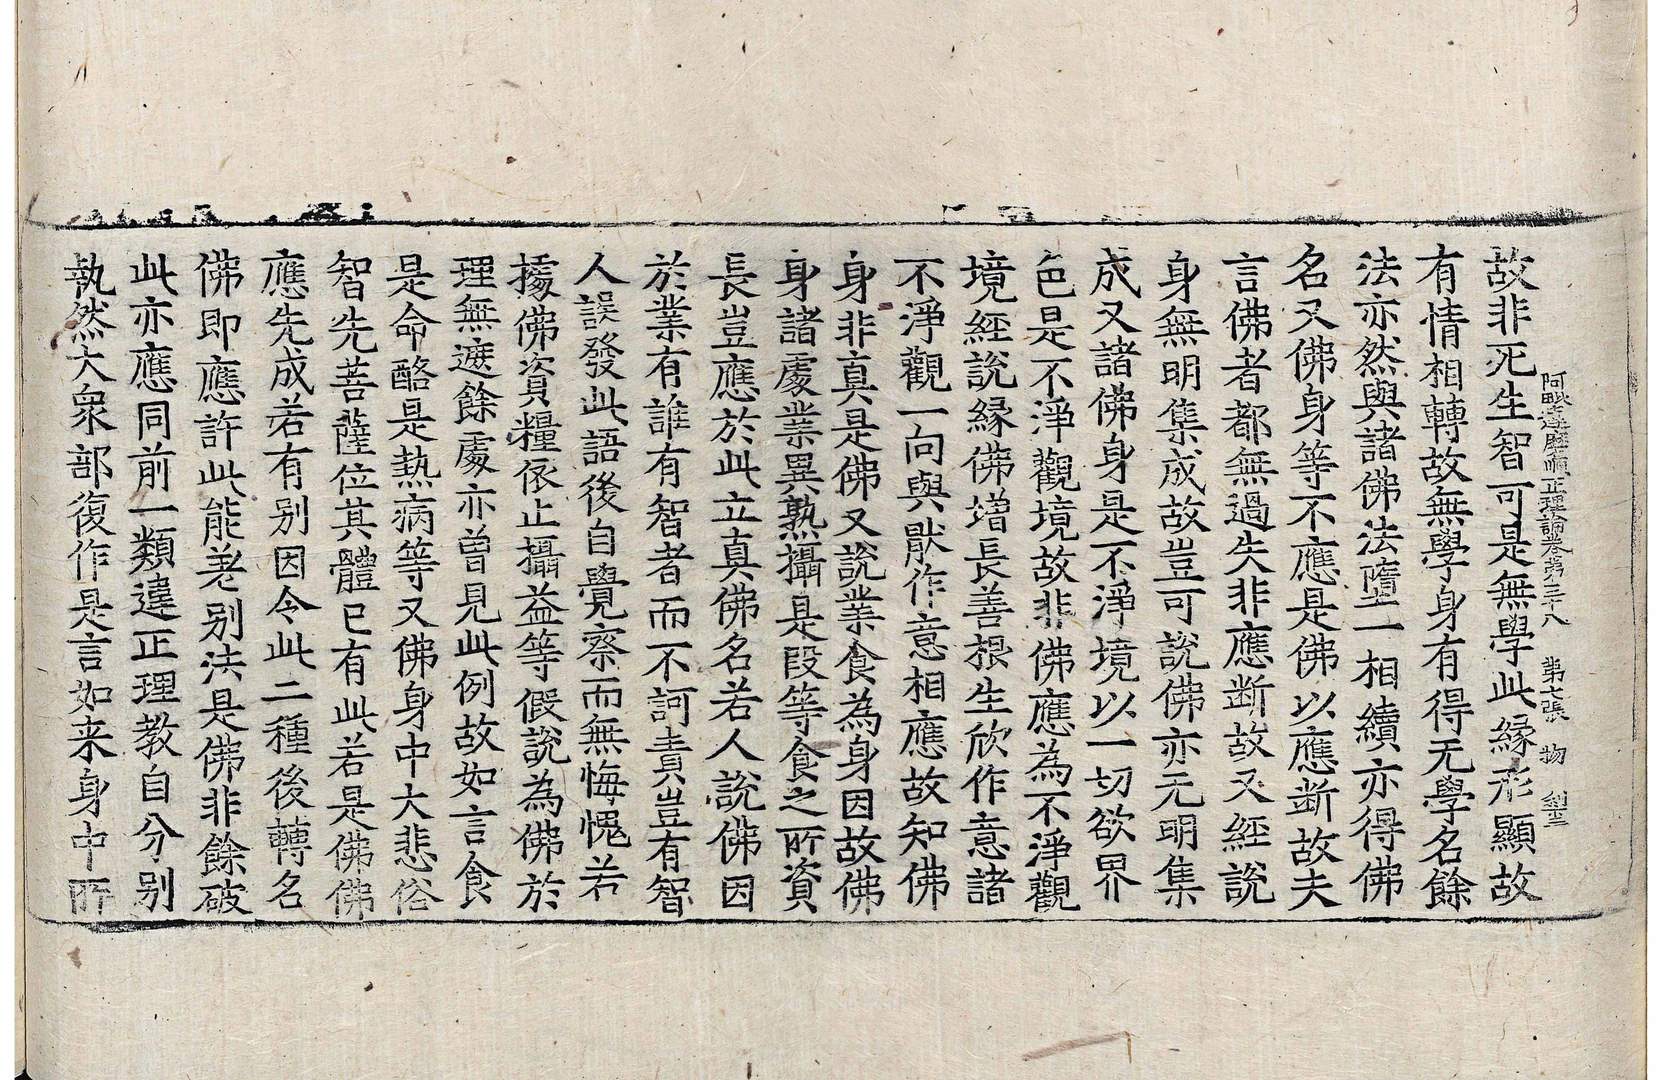 阿毗達磨順正理論卷第三十八 第七張 物
故非死生智可是無學此緣形顯故
有情相轉故無學身有得无學名餘
法亦然與諸佛法墮一相續亦得佛
名又佛身等不應是佛以應断故夫
言佛者都無過失非應断故又經說
身無明集成故豈可說佛亦无明集
成又諸佛身是不淨境以一切欲界
色是不淨觀境故非佛應為不淨觀
境經說緣佛增長善根生欣作意諸
不淨觀一向與猒作意相應故知佛
身非真是佛又說業食為身因故佛
身諸處業異熟攝是段等食之所資
長豈應於此立真佛名若人說佛因
於業有誰有智者而不訶責豈有智
人誤發此語後自覺察而無悔愧若
據佛資糧依止攝益等假說為佛於
理無遮餘處亦曽見此例故如言食
是命酪是熱病等又佛身中大悲俗
智先菩薩位其體已有此若是佛佛
應先成若有别因令此二種後轉名
佛即應許此能差别法是佛非餘破
此亦應同前一類違正理教自分别
執然大衆部復作是言如来身中所